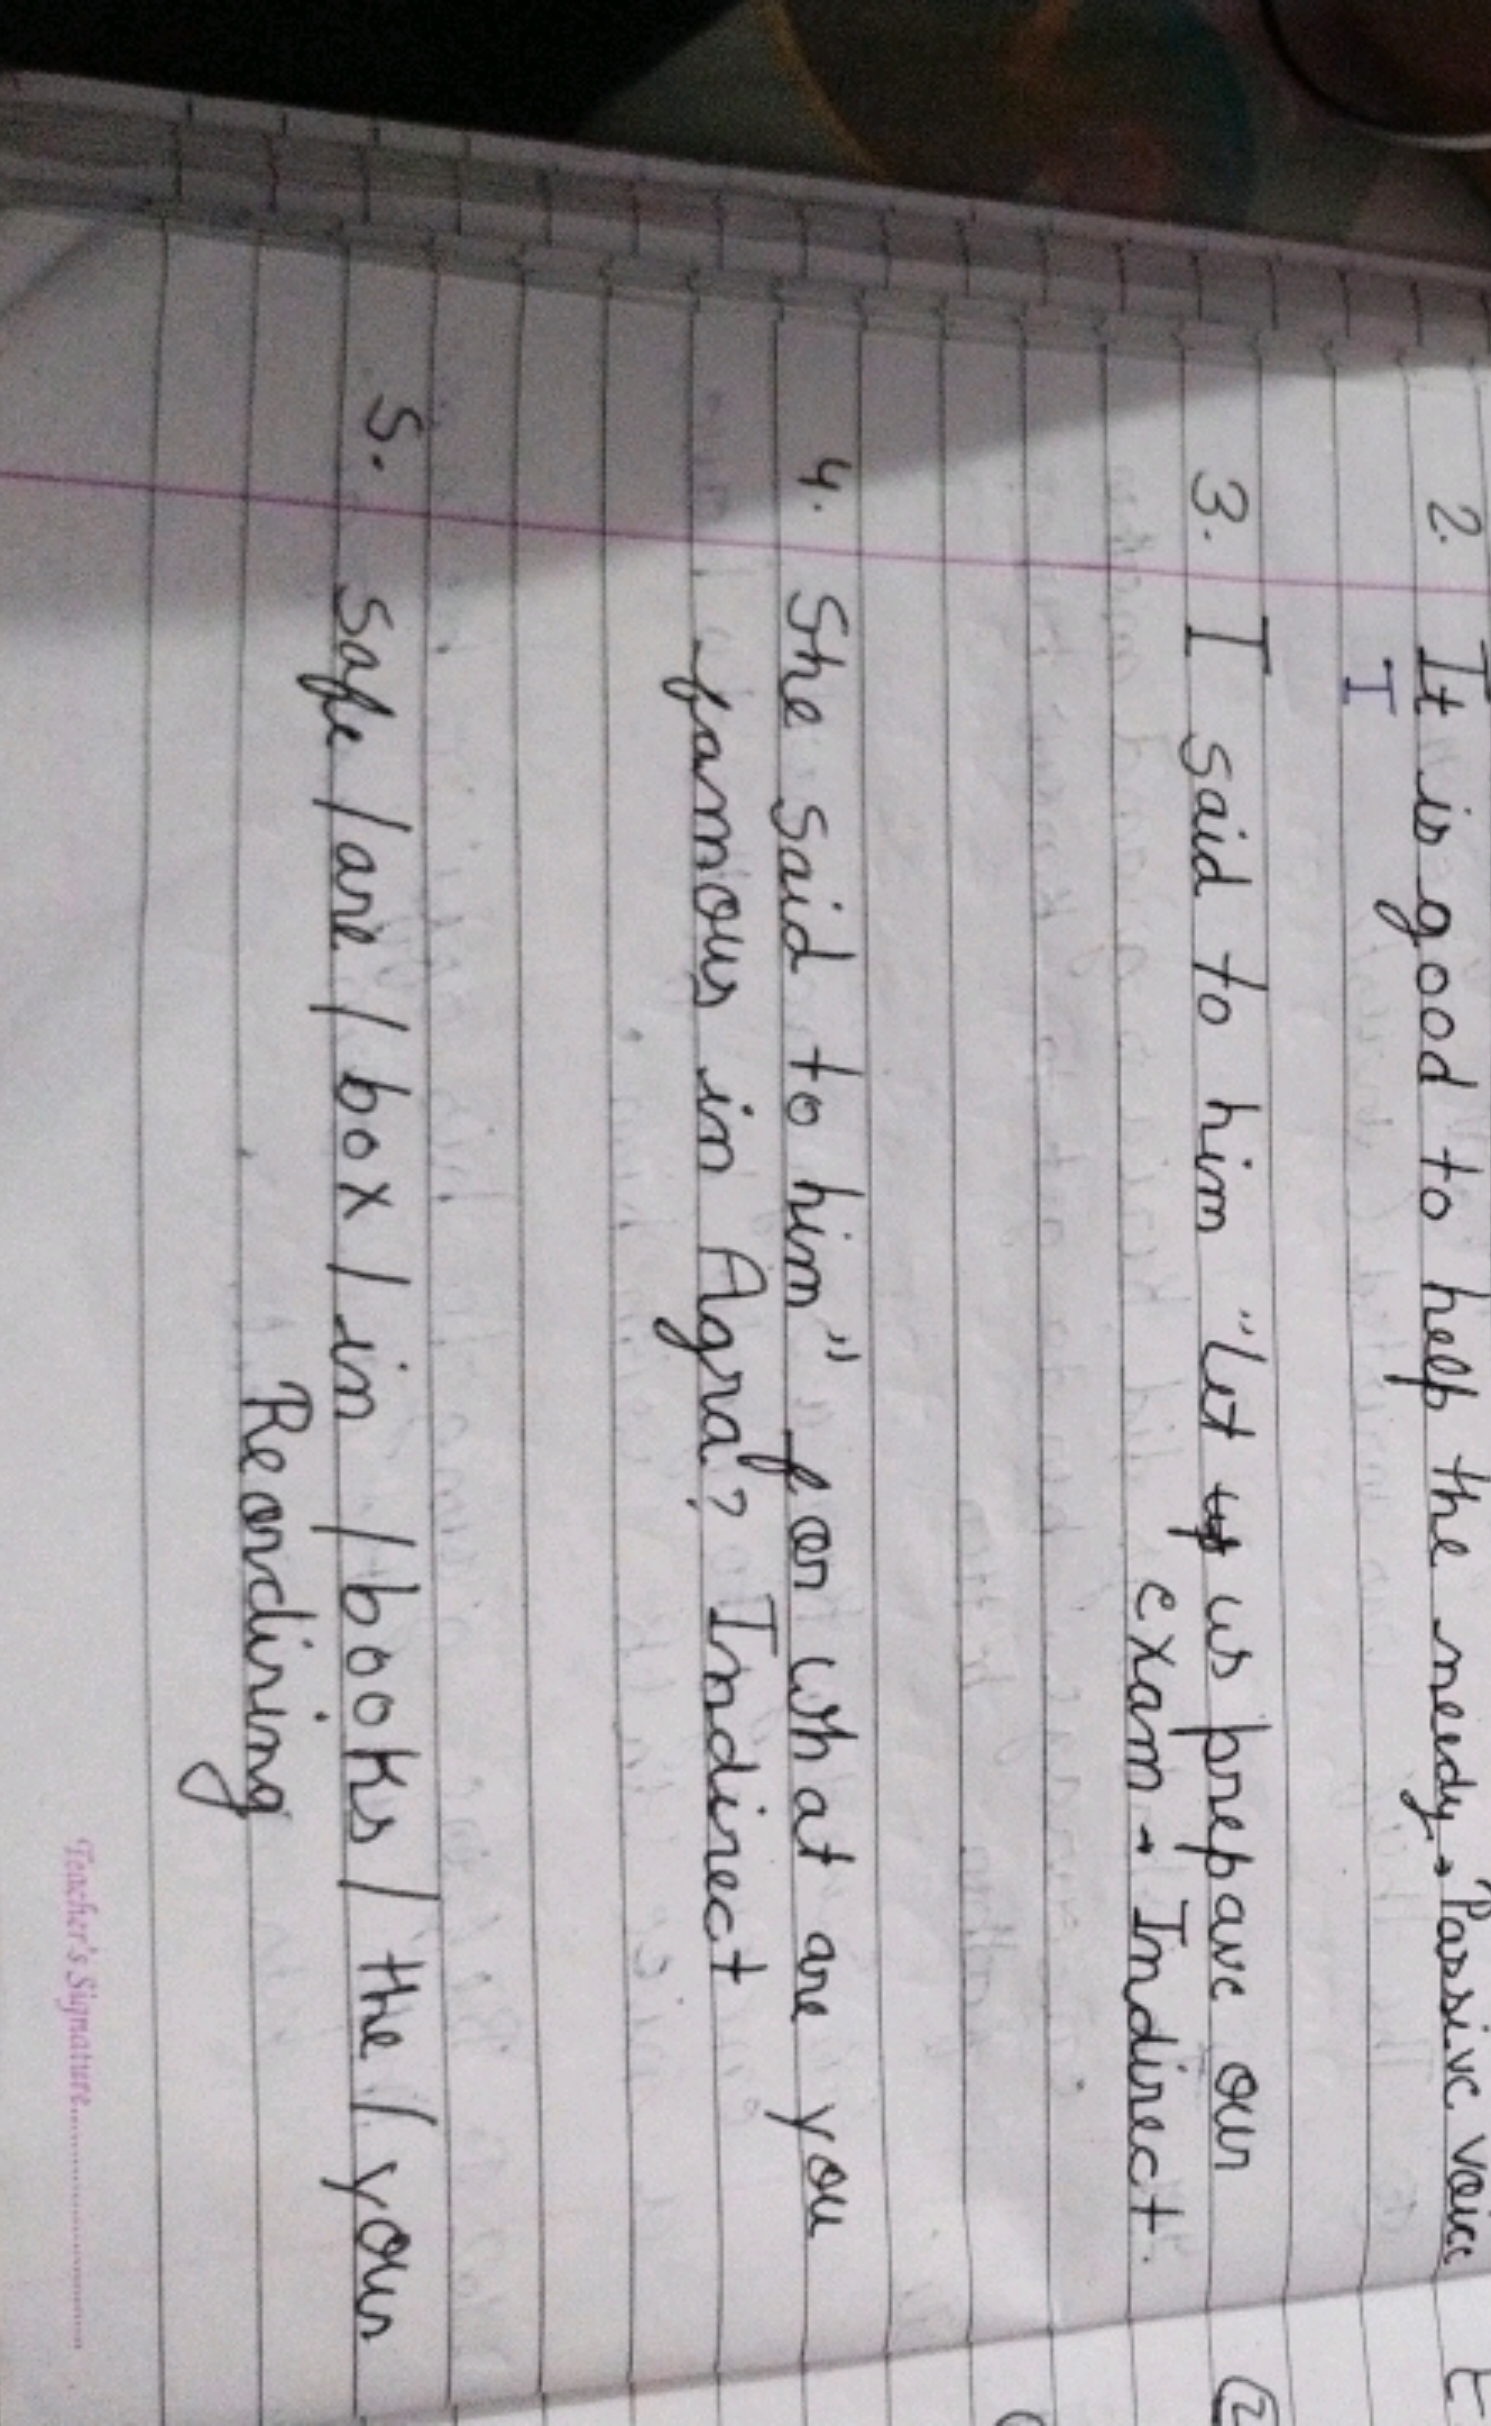 2. It is good to help the needy → Passive voice
I
3. I said to him "Let us prepave our
exam → Indirect.
4. She said to him" for what are you
famous in Agra? Indirect
5. safe / are / box / in / books / the / your
Reording
Teacher's Signature